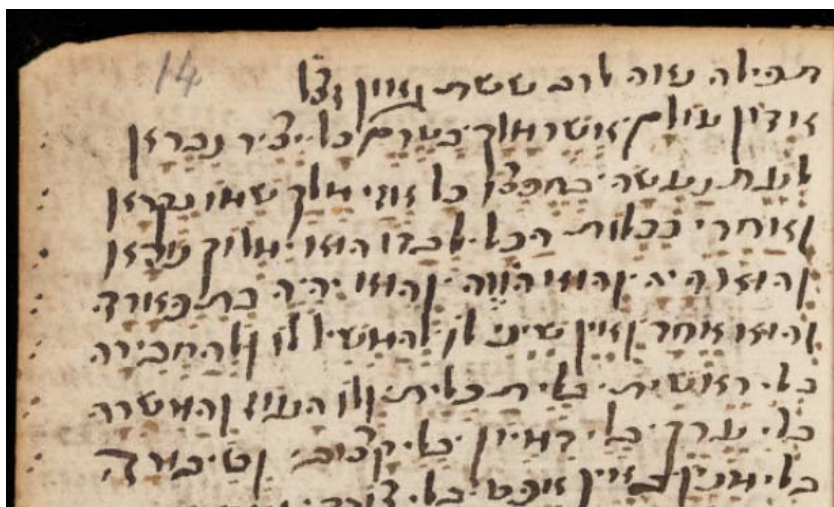 14
תפילה נאוה לרב ששת גאון זצ"ל
אדון עולם אשר מלך בטרם כל יציר נברא
לעת נעשה בחפצו כל אזי מלך שמו נקרא
ואחרי ככלות הכל לבדו הוא ימלוך נורא
והוא היה והוא הווה והוא יהיה בתפארה
והוא אחד ואין שיני לו להמשיל לו ולהחבירה
בלי ראשית בלי תכלית ולו העוז והמשרה
בלי ערך בלי דמיון בלי קצוב
בלי באין אפס בלי